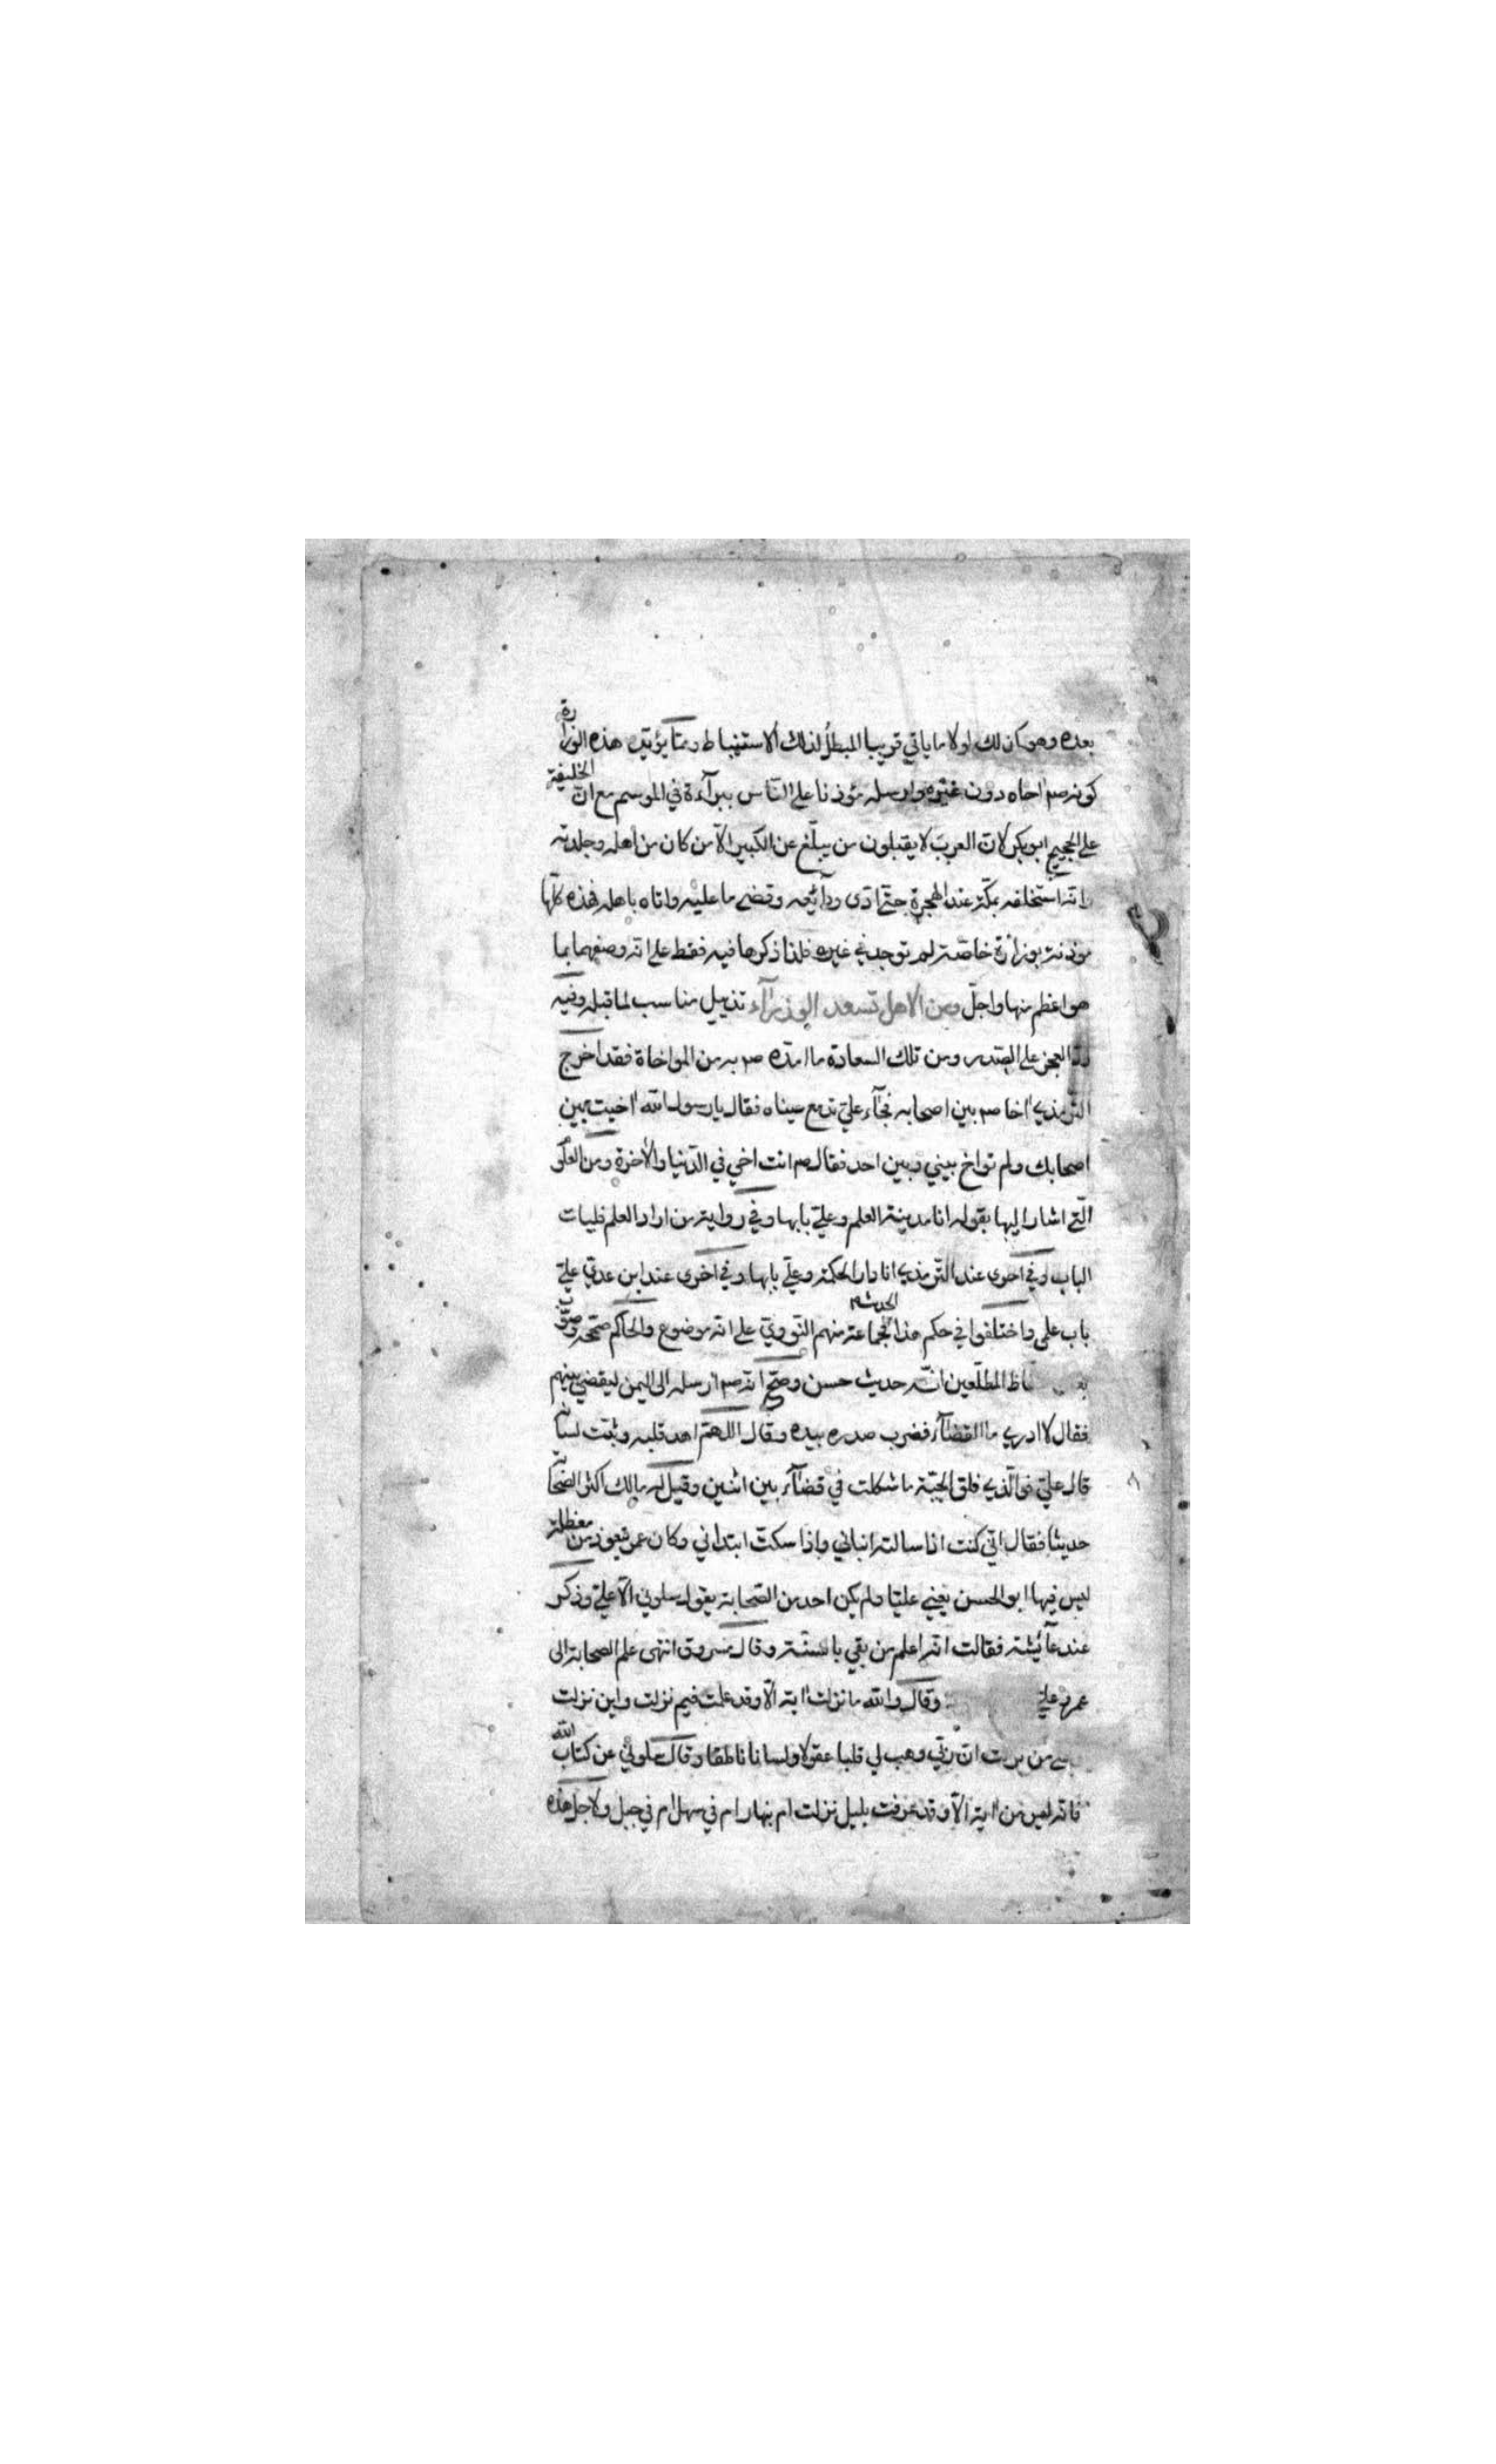 بعده وهو كذلك لولا ما ياتي قريبا المبطل لذلك الاستنباط ومما يؤيد هذه الوزارة
كونه صم اخاه دون غيره وارسله مؤذنا على الناس ببرآءة في الموسم مع ان الخليفة
على الحجيج ابو بكر لان العرب لا يقبلون من يبلغ عن الكبير الا من كان من اهله وجلدته
وانه استخلفه بمكة عند الهجرة حتى ادى ودآئعه وقضى ما عليه واتاه باهله فهذه كلها
موذنة بوزارة خاصة لم توجد في غيره فلذا ذكرها فيه فقط على انه وصفهما بما
هو اعظم منها واجل ومن الاهل تسعد الوزرآء تذييل مناسب لما قبله وفيه
رد العجز على الصدر ومن تلك السعادة ما امده صم به من المواخاة فقد اخرج
الترمذي اخا صم بين اصحابه فجآء علي تدمع عيناه فقال يا رسول الله اخيت بين
اصحابك ولم تواخ بيني وبين احد فقال صم انت اخي في الدنيا والاخرة ومن العلو
التي اشار اليها بقوله انا مدينة العلم وعلي بابها وفي رواية من اراد العلم فليات
الباب وفي اخرى عند الترمذي انا دار الحكمة وعلي بابها وفي اخرى عند ابن عدي علي
باب علمي واختلفوا في حكم هذا الحديث فجماعة منهم النووي على انه موضوع والحاكم صححه وصوب
الحفاظ المطلعين انه حديث حسن وصح انه صم ارسله الى اليمن ليقضي بينهم
فقال لا ادري ما القضآء فضرب صدره بيده وقال اللهم اهد قلبه وثبت لسانه
قال علي فوالذي فلق الحبة ما شككت في قضآء بين اثنين وقيل له مالك اكثر الصحابة
حديثا فقال اني كنت اذا سالته انباني واذا سكت ابتداني وكان عمر يتعوذ من معظلة
ليس فيها ابو الحسن يعني عليا ولم يكن احد من الصحابة يقول سلوني الا علي وذكر
عند عآئشة فقالت انه اعلم من بقي بالسنة وقال مسروق انتهى علم الصحابة الى
عمر وعلي وقال والله ما نزلت اية الا وقد علمت فيم نزلت واين نزلت
من نزلت ان ربي وهب لي قلبا عقولا ولسانا ناطقا وقال سلوني عن كتاب الله
فانه ليس من اية الا وقد عرفت بليل نزلت ام بنهار ام في سهل ام في جبل ولاجل هذه